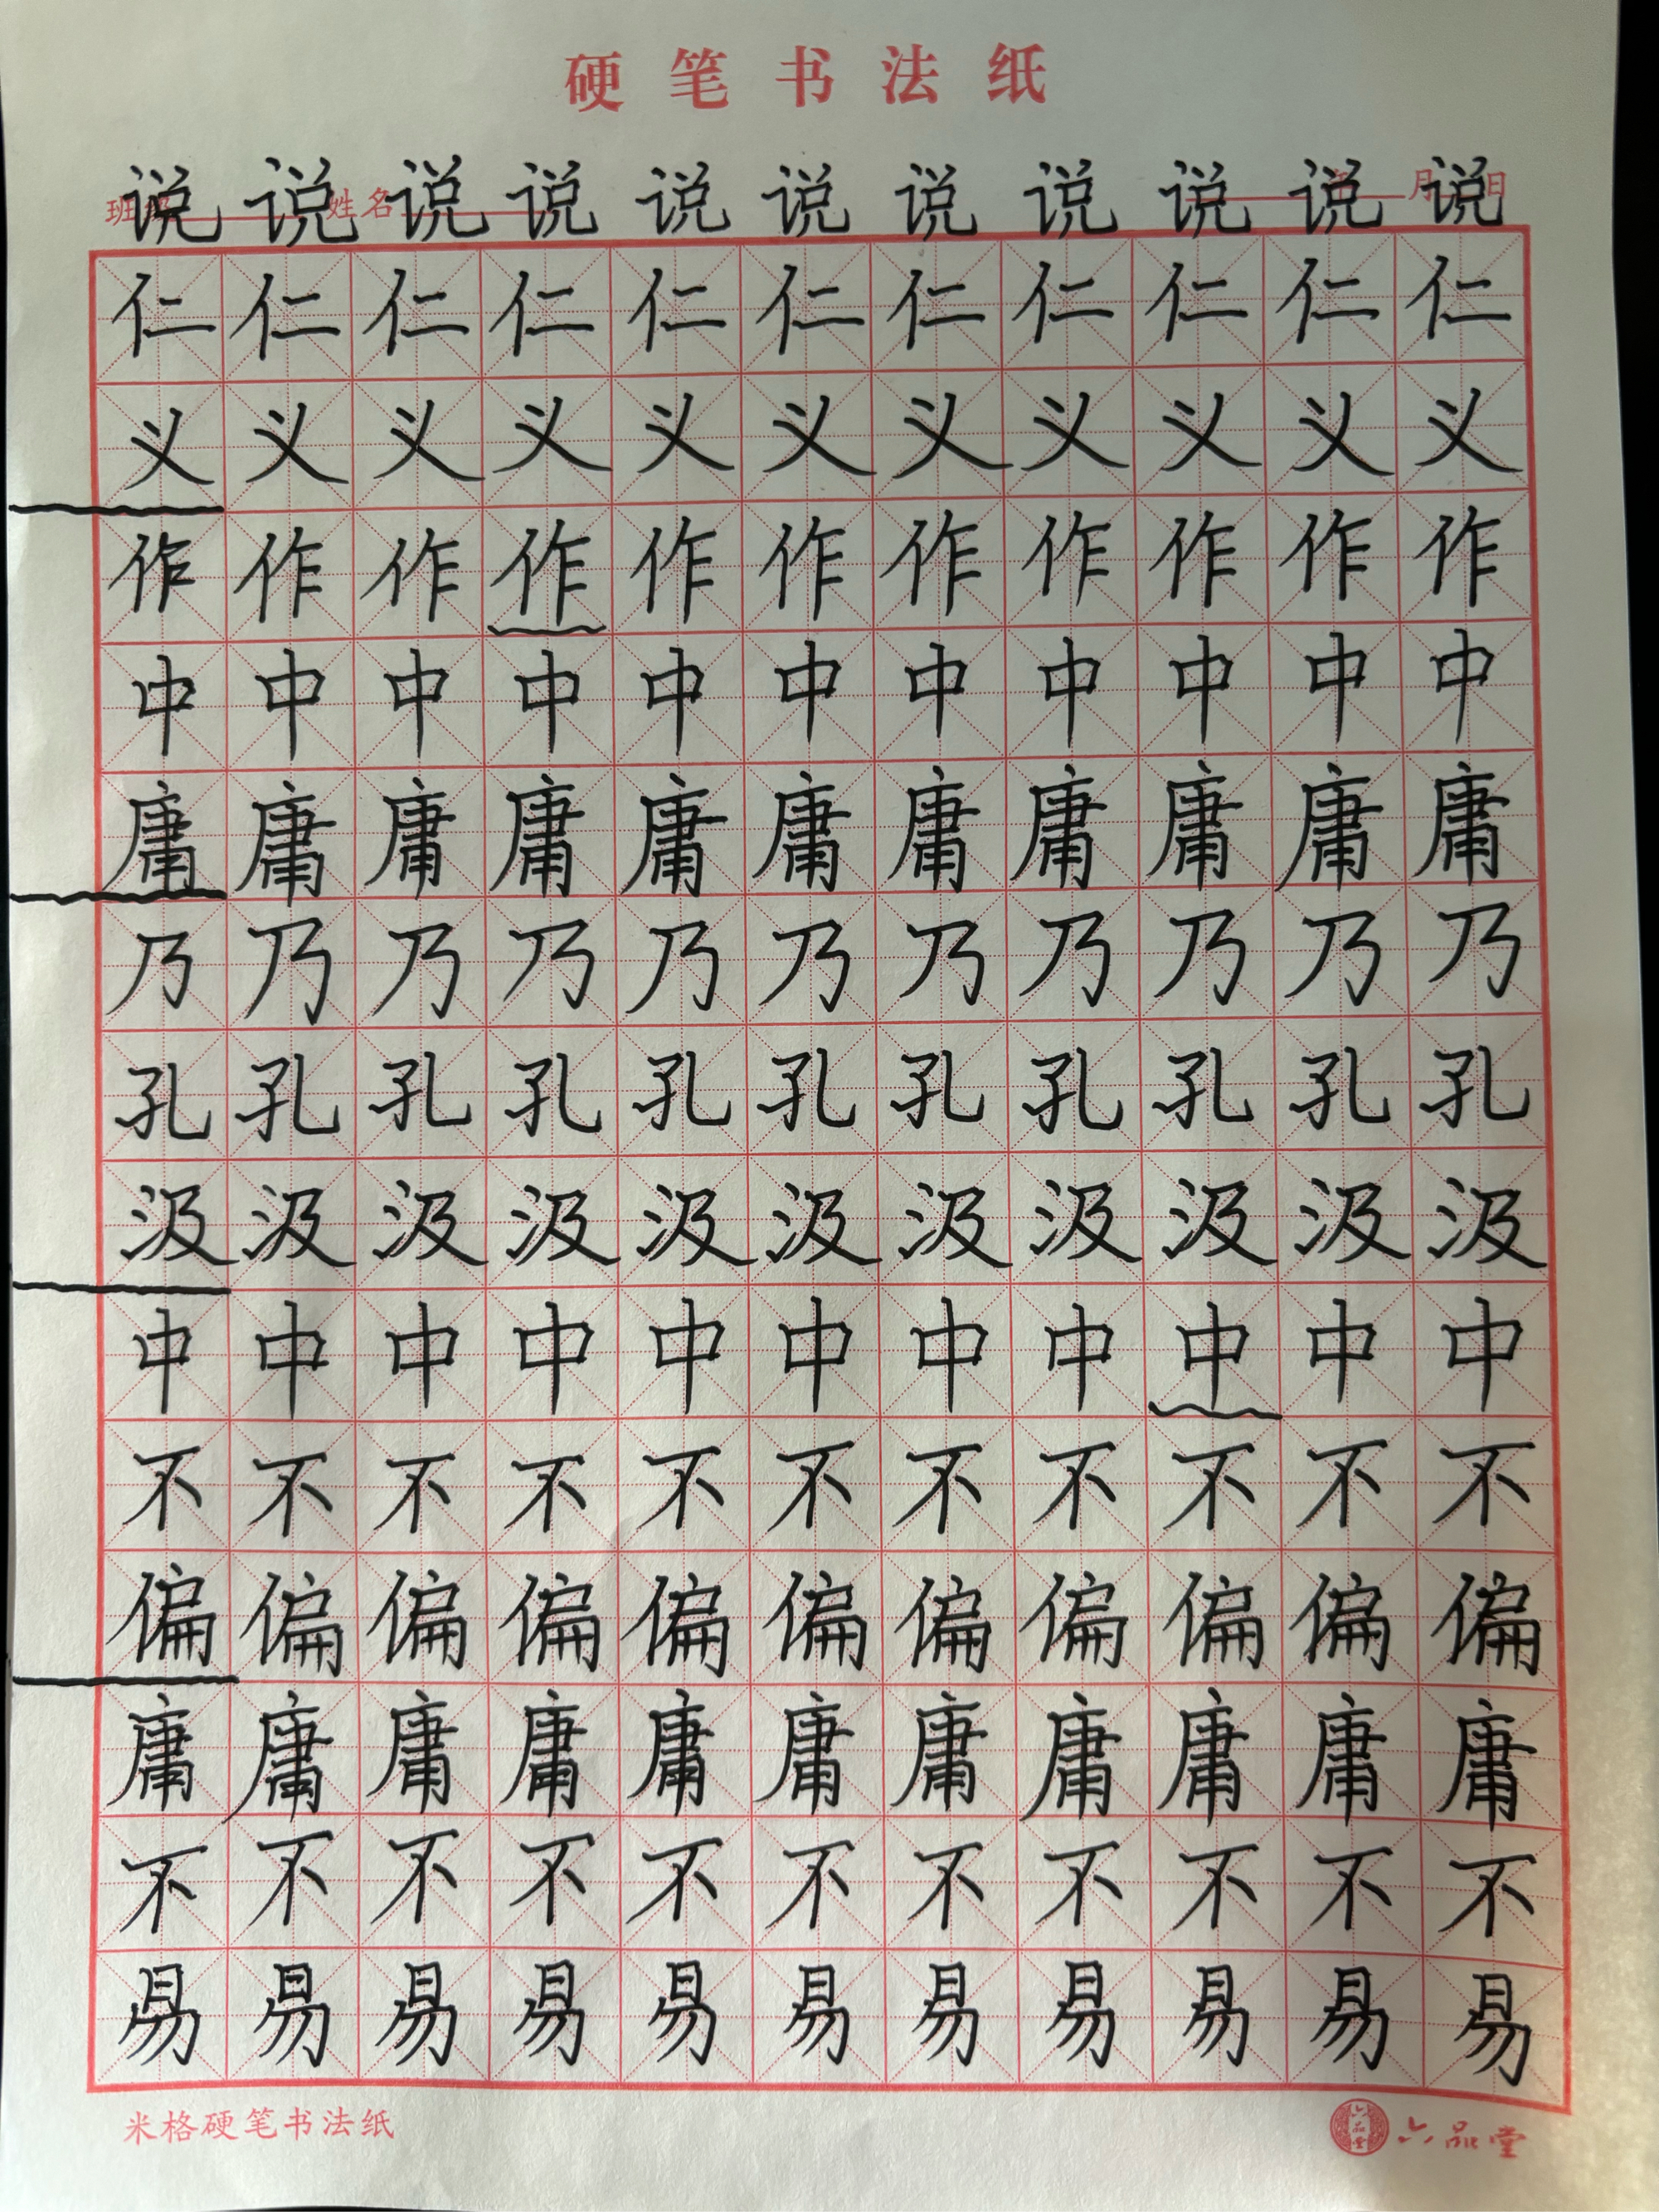 硬笔书法纸
班级 姓名 年 月 日
说说说说说说说说说说说
仁仁仁仁仁仁仁仁仁仁仁
义义义义义义义义义义义
作作作作作作作作作作作
中中中中中中中中中中中
庸庸庸庸庸庸庸庸庸庸庸
乃乃乃乃乃乃乃乃乃乃乃
孔孔孔孔孔孔孔孔孔孔孔
汲汲汲汲汲汲汲汲汲汲汲
中中中中中中中中中中中
不不不不不不不不不不不
偏偏偏偏偏偏偏偏偏偏偏
庸庸庸庸庸庸庸庸庸庸庸
不不不不不不不不不不不
易易易易易易易易易易易
米格硬笔书法纸 六品堂 六品堂